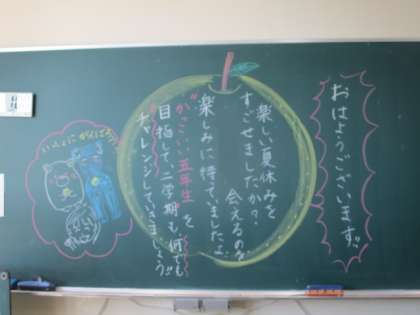 おはようございます。
楽しい夏休みを
すごせましたか？
会えるのを
楽しみに待っていましたよ。
"かっこいい五年生"を
目指して、二学期も何でも
チャレンジしていきましょう！
いっしょにがんばろう